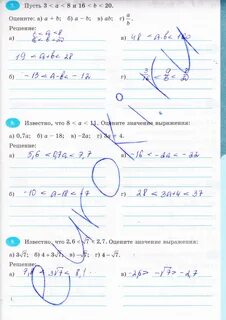 7. Пусть 3 < a < 8 и 16 < b < 20.
Оцените: а) a + b; б) a − b; в) ab; г) a/b.
Решение:
а) 3 < a < 8 в) 48 < a·b <
19 < a+b < 28 г)
б) −13 < a−b < −12
8. Известно, что 8 < a < 11. Оцените значение выражения:
а) 0,7a; б) a − 18; в) −2a; г) 3a + 4.
Решение:
а) 5,6 < 0,7a < 7,7 в) −16 < −2a < −22
б) −10 < a−18 < г) 28 < 3a+4 < 37
9. Известно, что 2,6 < √7 < 2,7. Оцените значение выражения:
а) 3√7; б) 4 + 3√7; в) −√7; г) 4 − √7.
Решение:
а) < 3√7 < 8,1 в) −2,6 > −√7 > −2,7